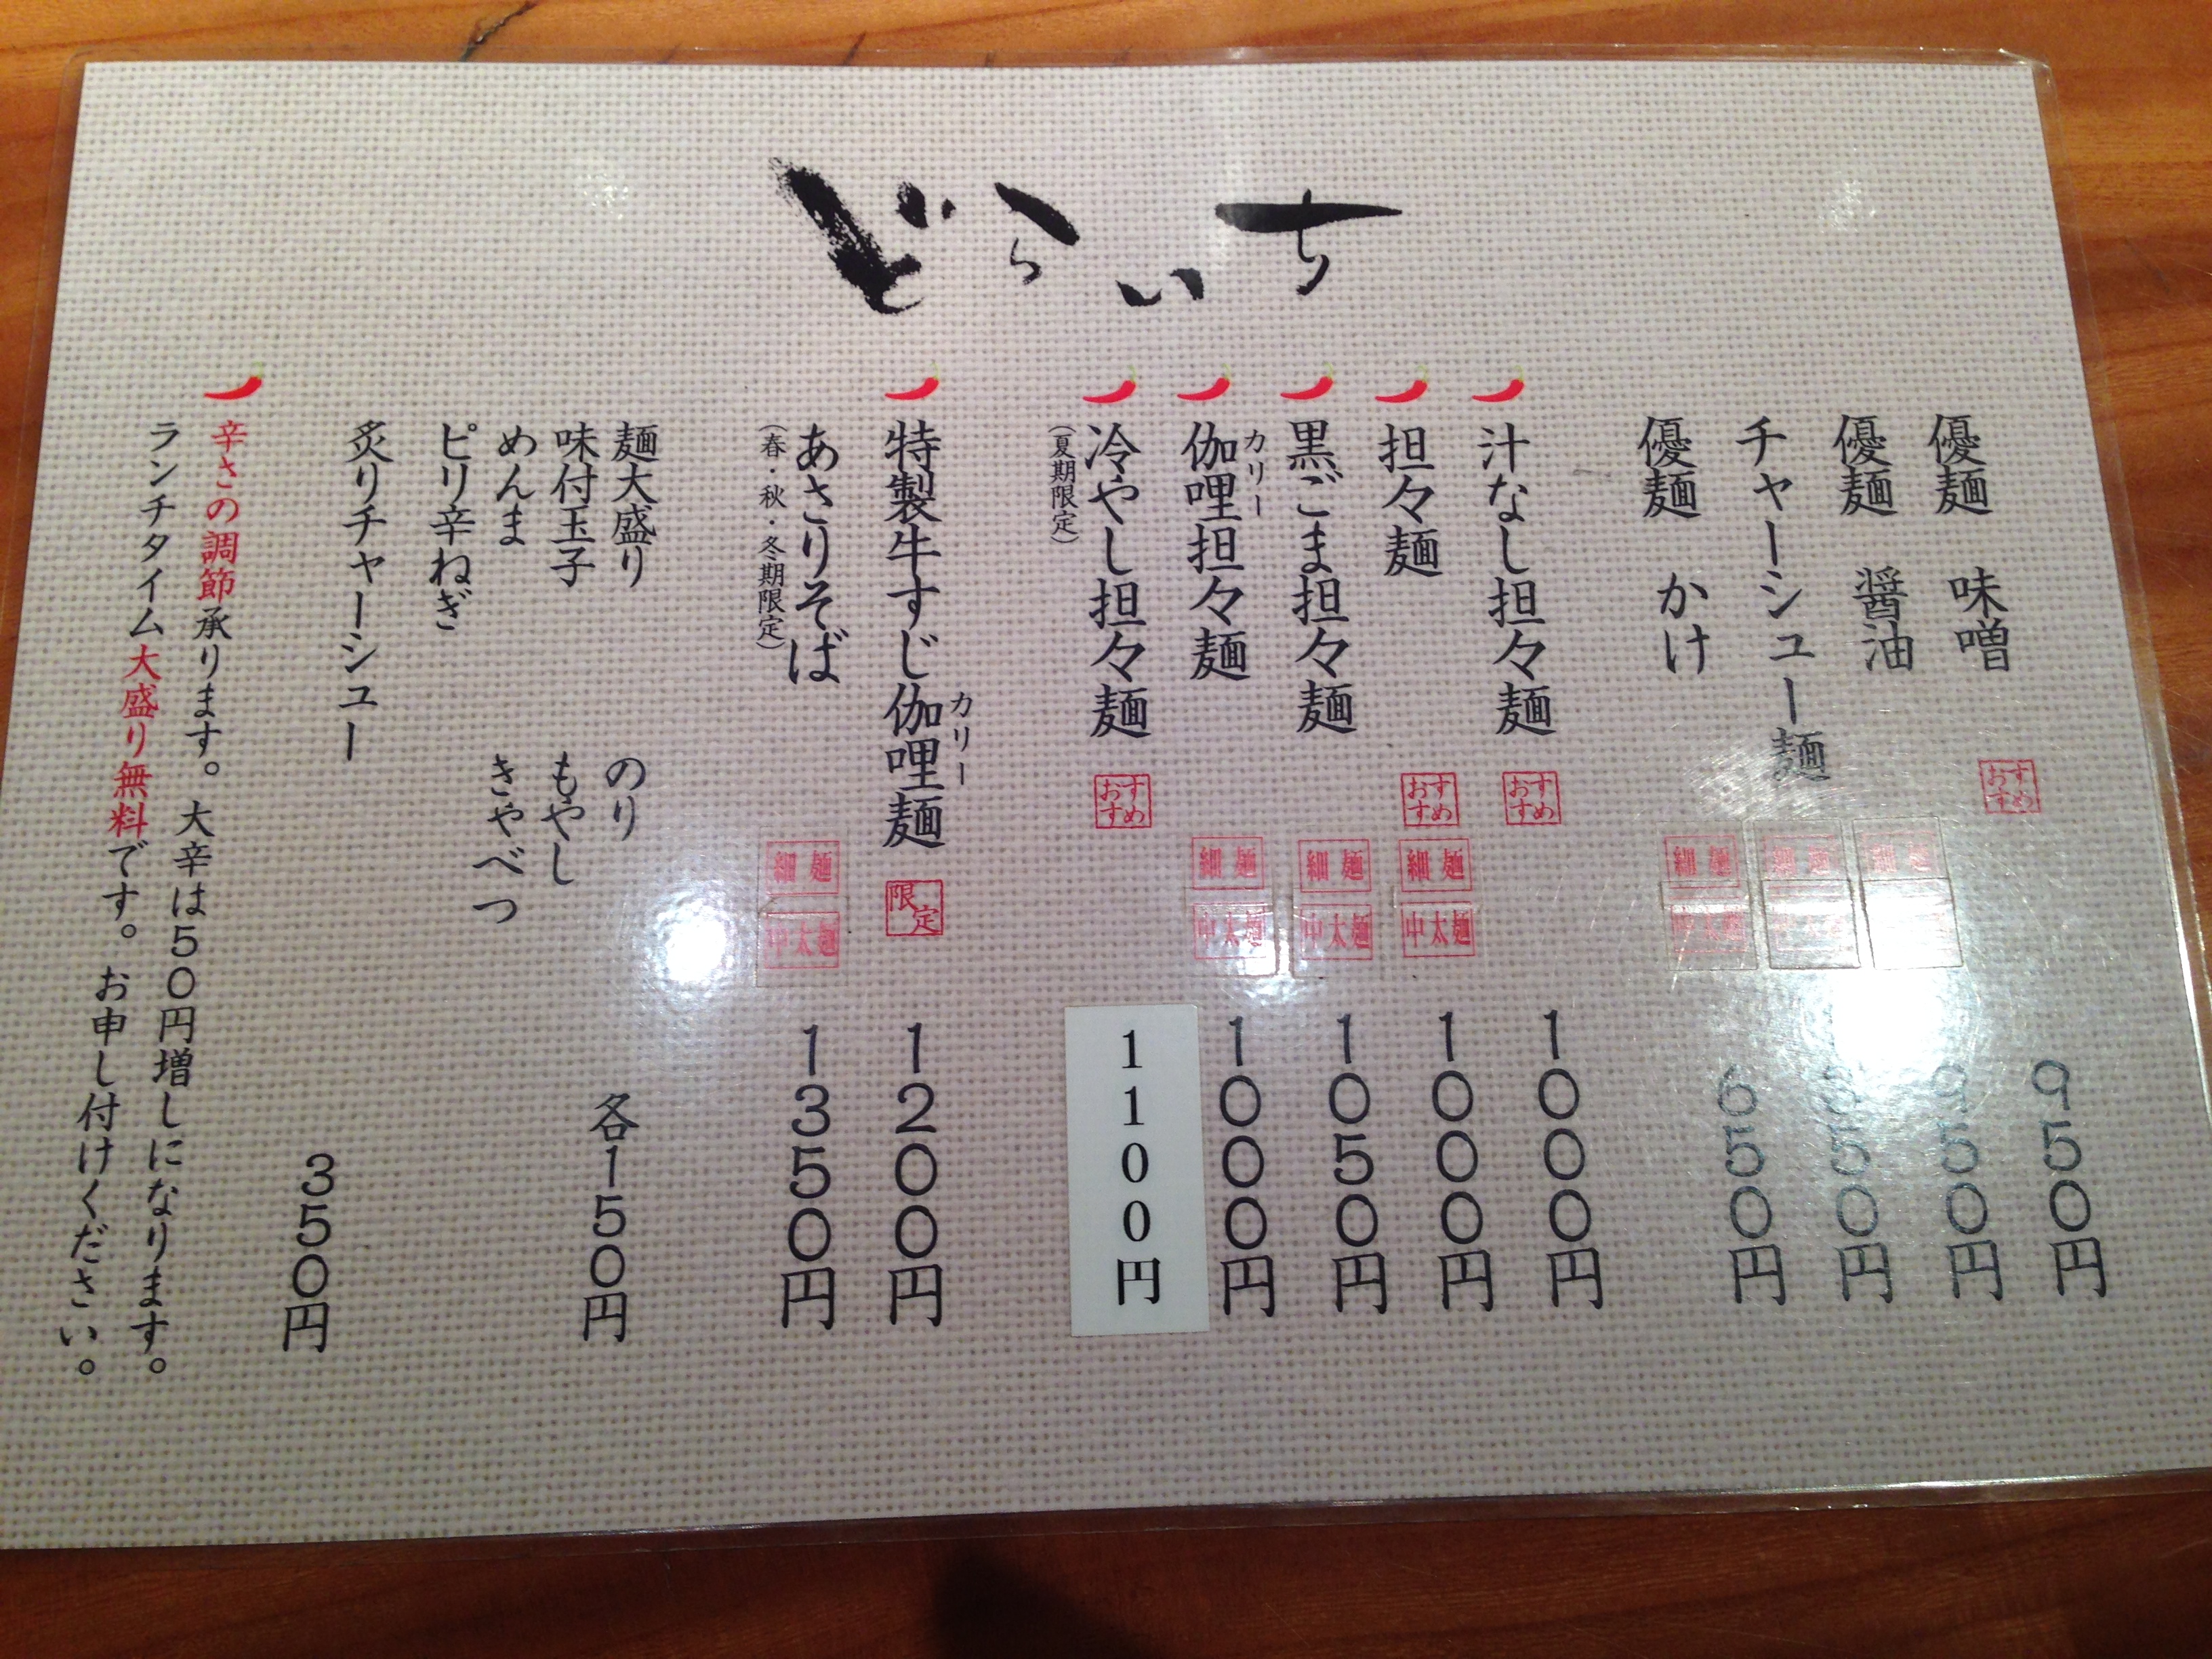 どらいち
優麺 味噌 おすすめ 950円
優麺 醤油 細麺
チャーシュー麺 細麺 中太麺
優麺 かけ 細麺 中太麺 650円
汁なし担々麺 おすすめ 1000円
担々麺 おすすめ 細麺 中太麺 1000円
黒ごま担々麺 細麺 中太麺 1050円
カリー
伽哩担々麺 細麺 中太麺 1000円
冷やし担々麺 おすすめ 1100円
(夏期限定)
カリー
特製牛すじ伽哩麺 限定 1200円
あさりそば 細麺 中太麺 1350円
(春・秋・冬期限定)
麺大盛り のり 各150円
味付玉子 もやし
めんま きゃべつ
ピリ辛ねぎ
炙りチャーシュー 350円
辛さの調節承ります。大辛は50円増しになります。
ランチタイム大盛り無料です。お申し付けください。